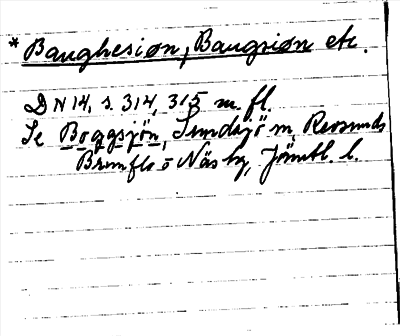 * Baughesiøn, Baugsiøn etc.
D N 14, s. 314, 315 m. fl.
Se Boggsjön, Sundsjö m, Revsunds
Brunflo o Näs hg, Jämtl. l.